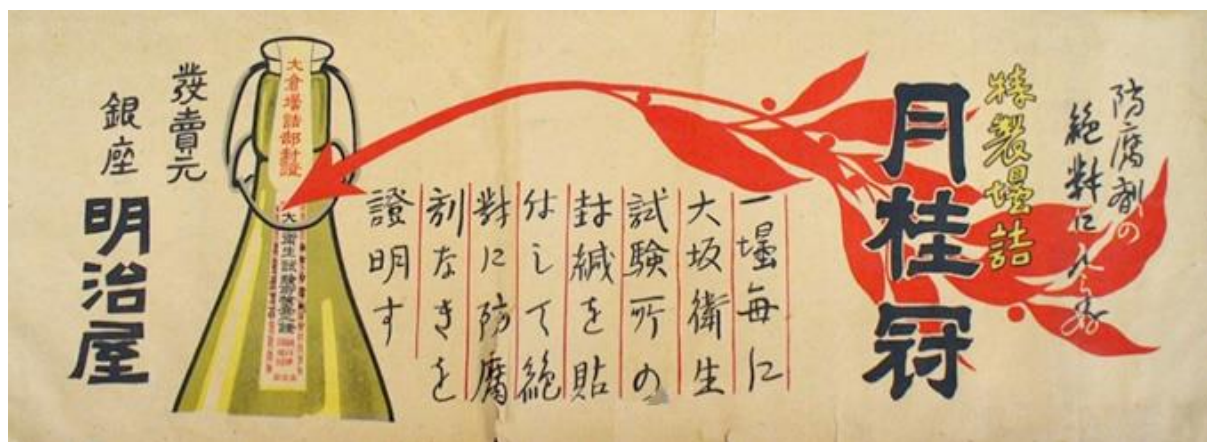 防腐剤の
絶對に
特製壜詰
月桂冠
一壜毎に
大坂衛生
試験所の
封緘を貼
付して絶
對に防腐
剤なきを
證明す
大倉壜詰部封證
發賣元
銀座 明治屋